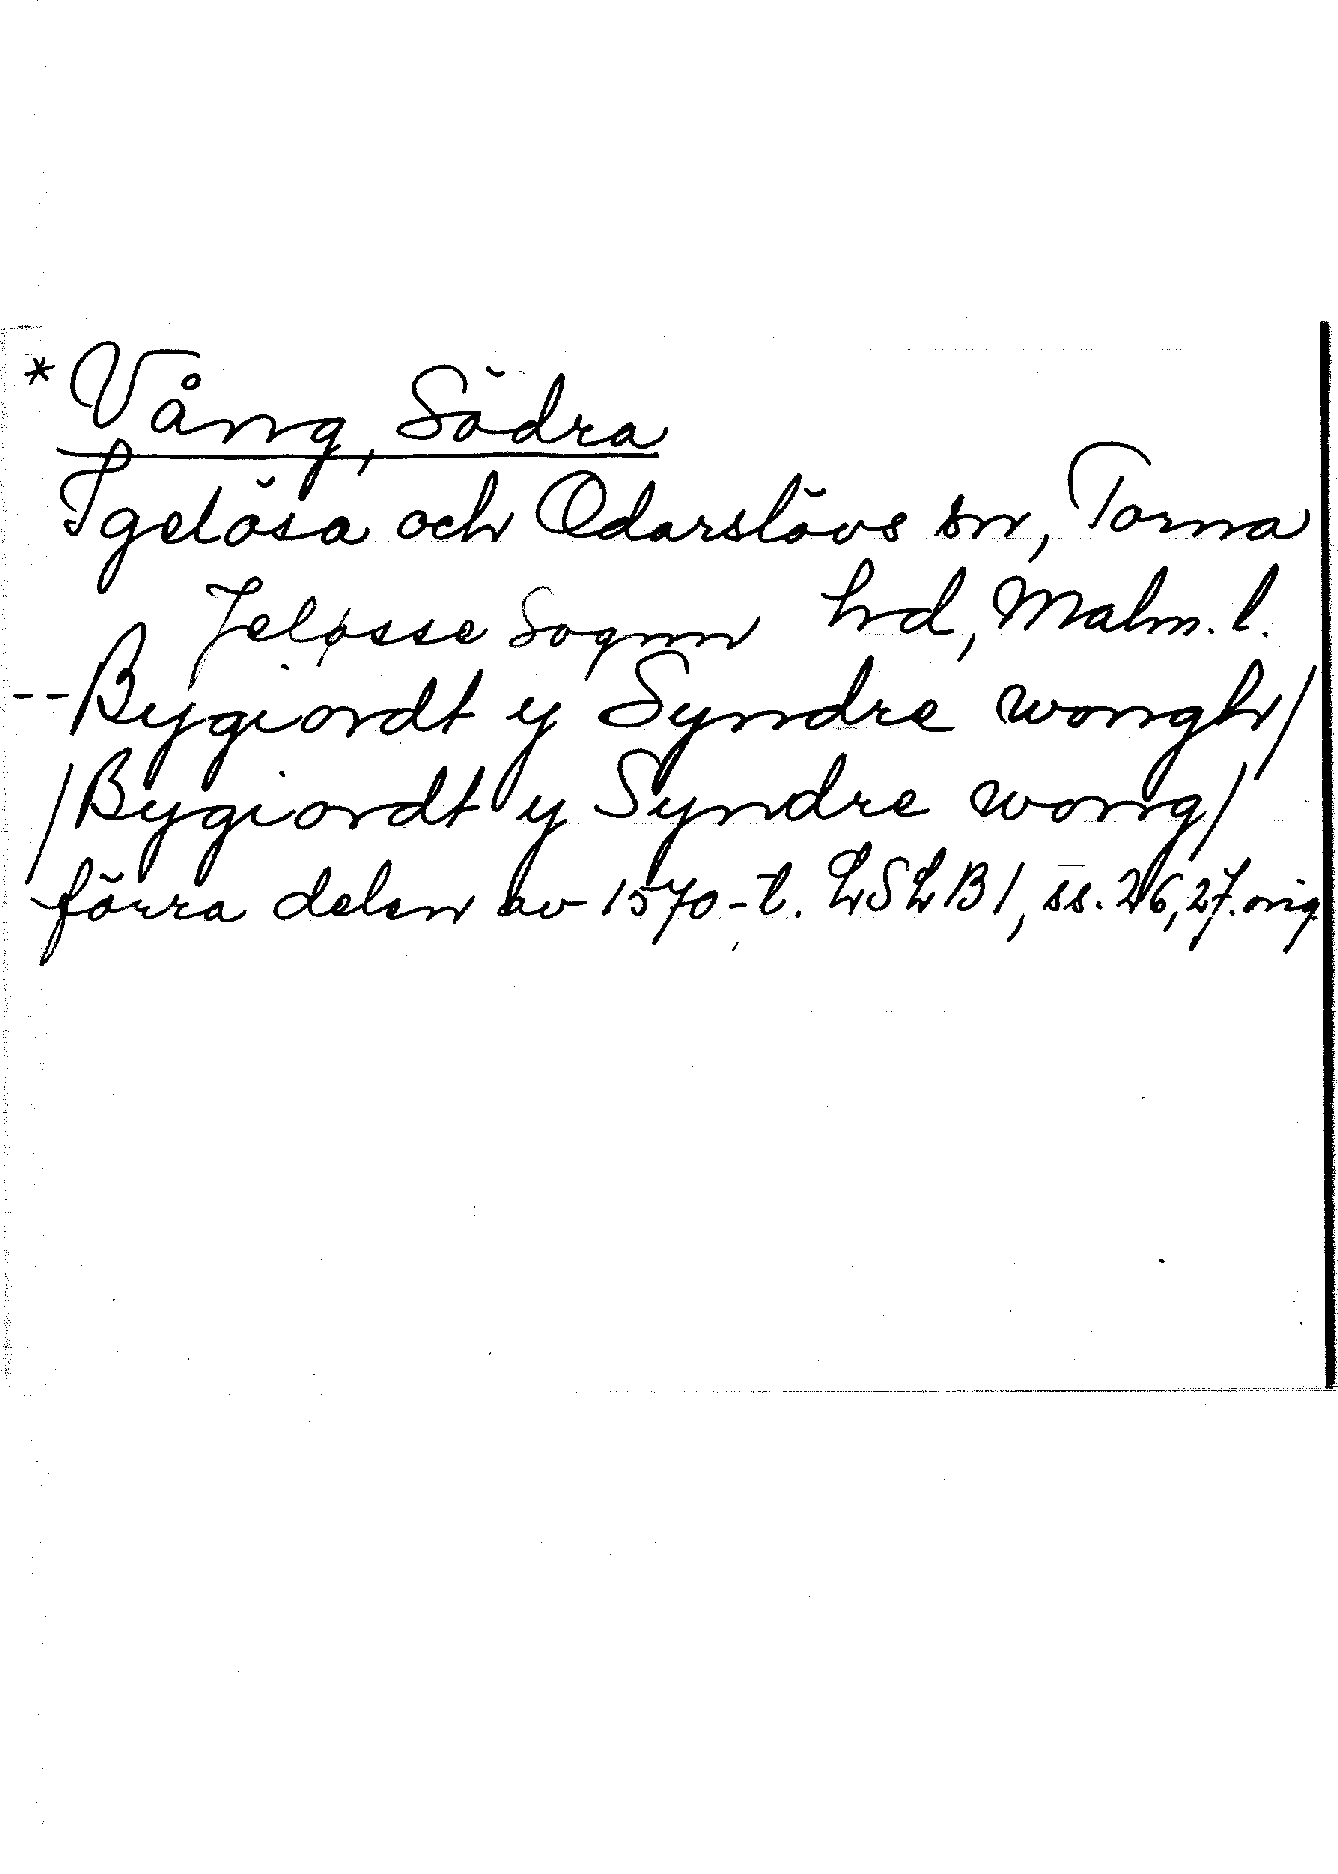 *Vång, Södra
Igelösa och Odarslövs sn, Torna
Jeløsse Sognn hd, Malm. l.
-- Bygiordt y Syndre wongh/
/Bygiordt y Syndre wong/
förra delen av 1570-t. LSLB1, ss. 26, 27. orig.